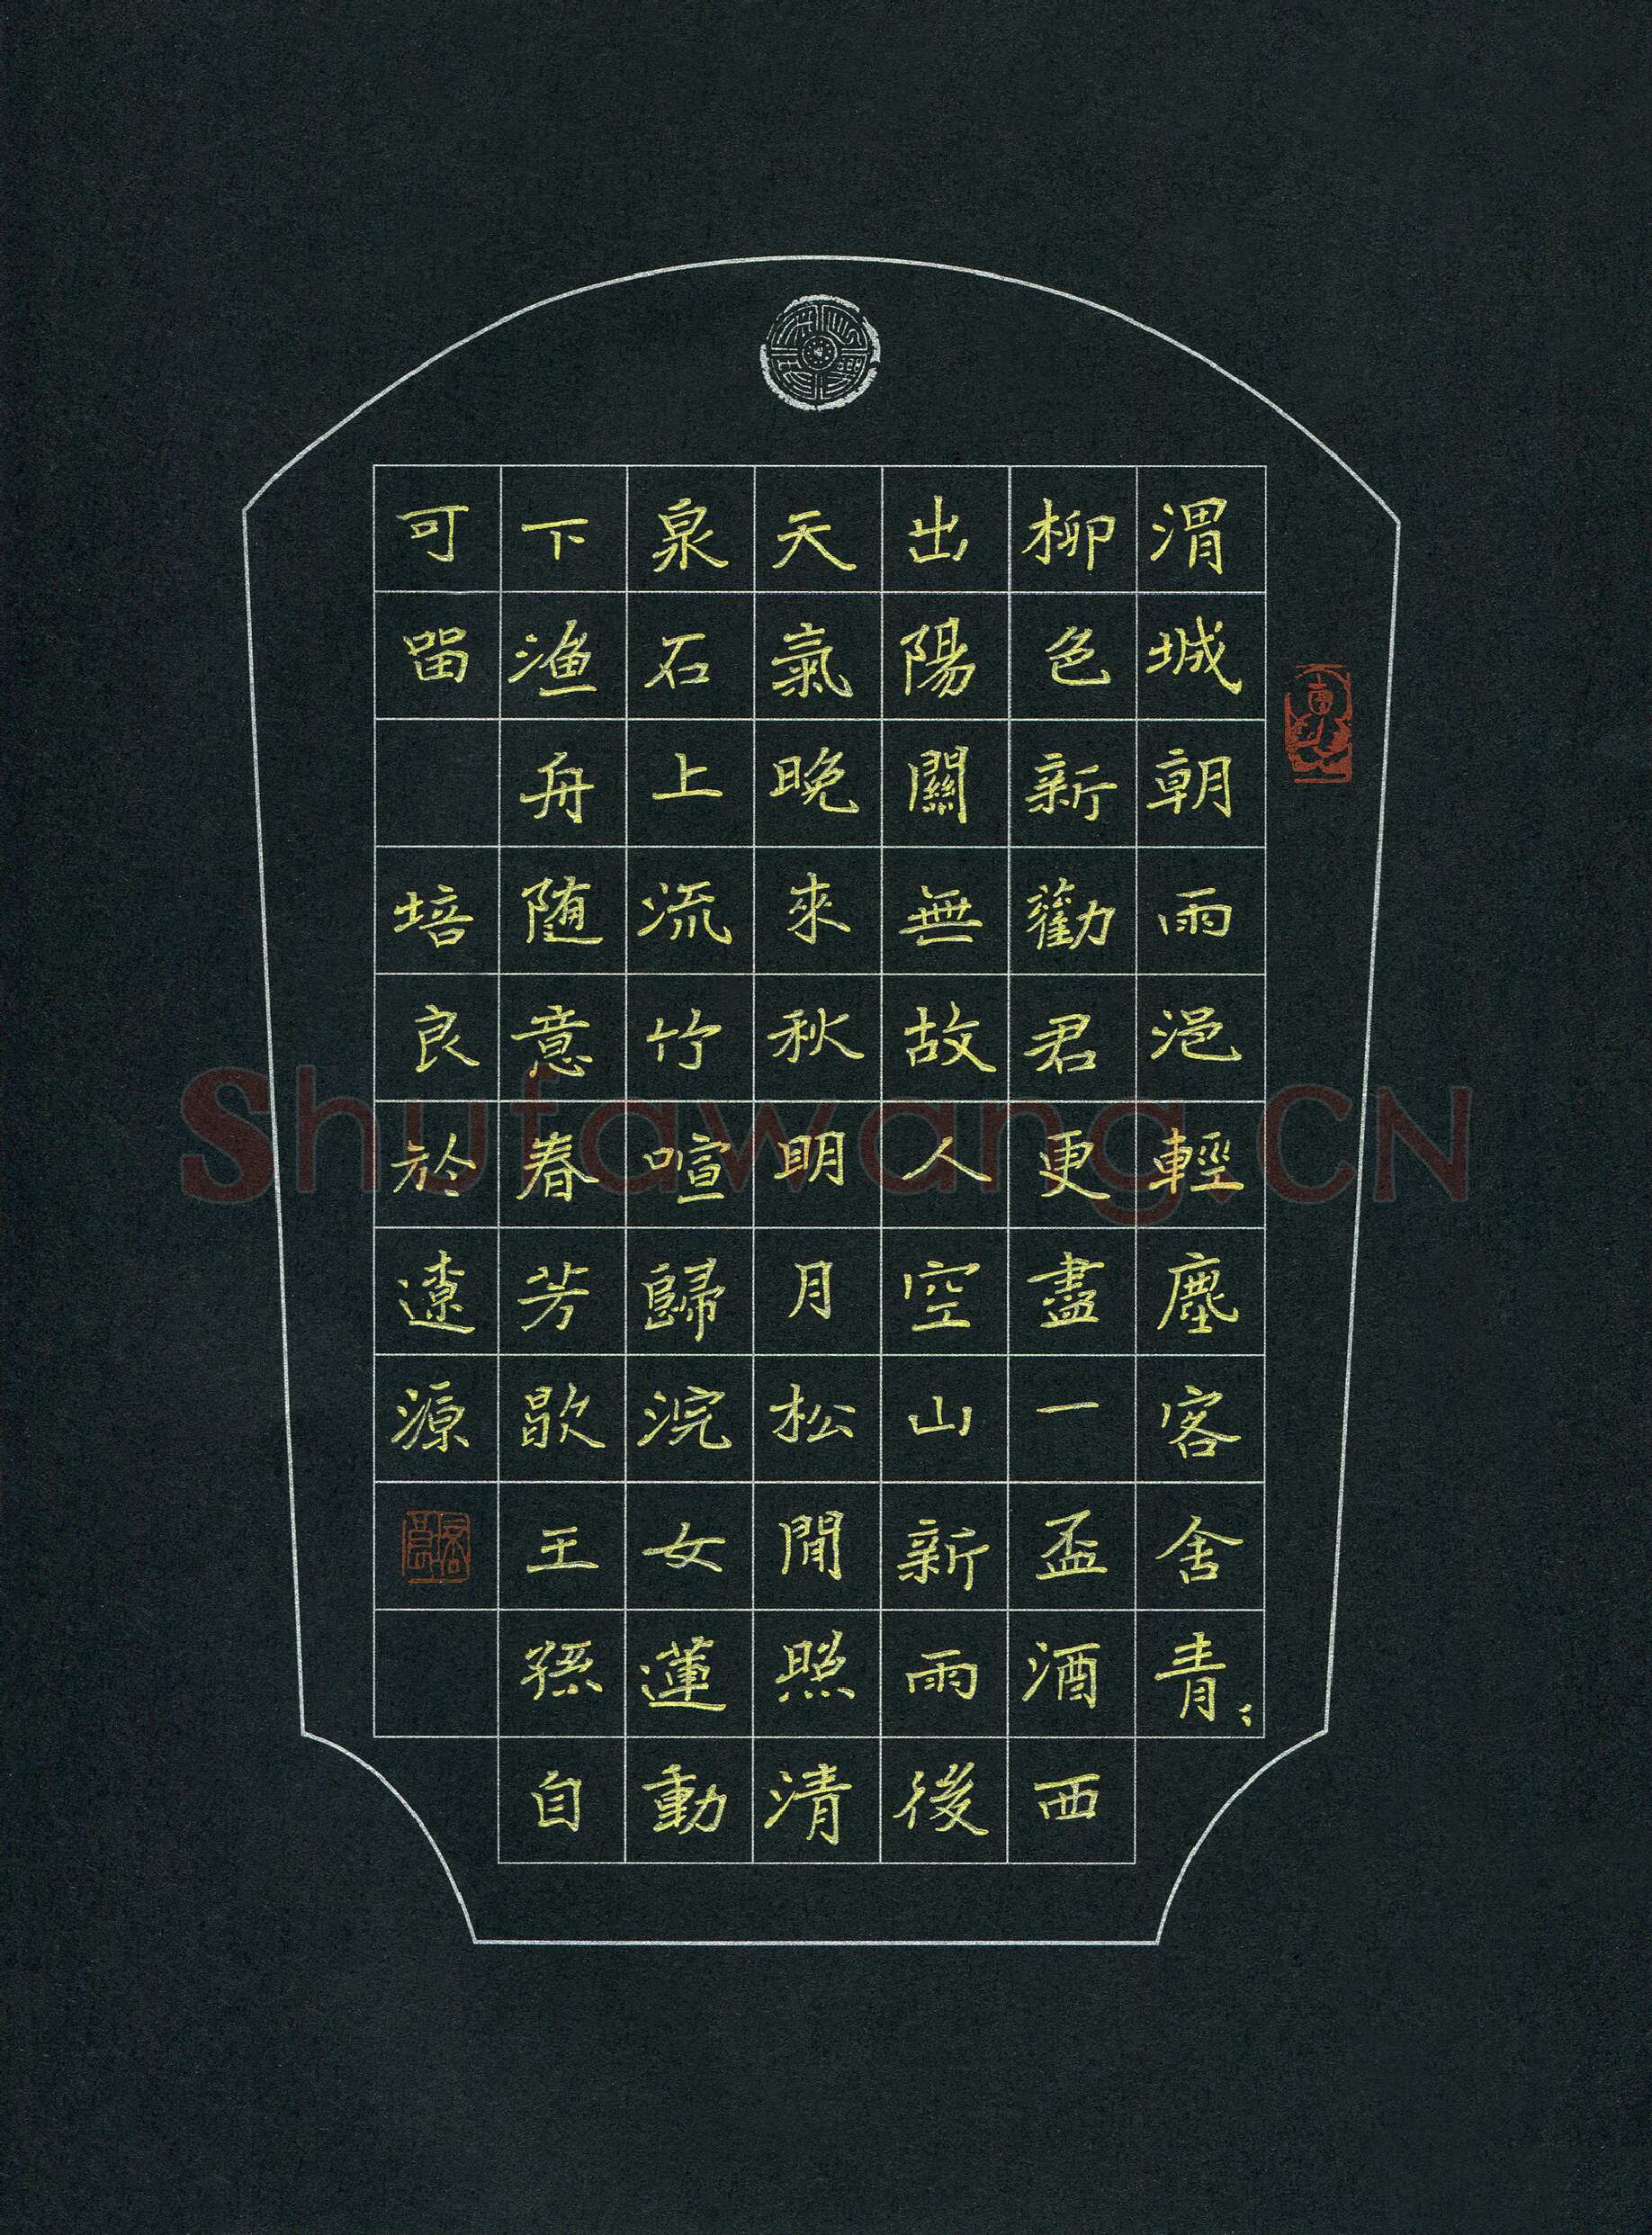 渭城朝雨浥輕塵客舍青〻
柳色新勸君更盡一盃酒西
出陽關無故人空山新雨後
天氣晚來秋明月松閒照清
泉石上流竹喧歸浣女蓮動
下漁舟随意春芳歇王孫自
可留
培良於遼源
Shufawang.CN